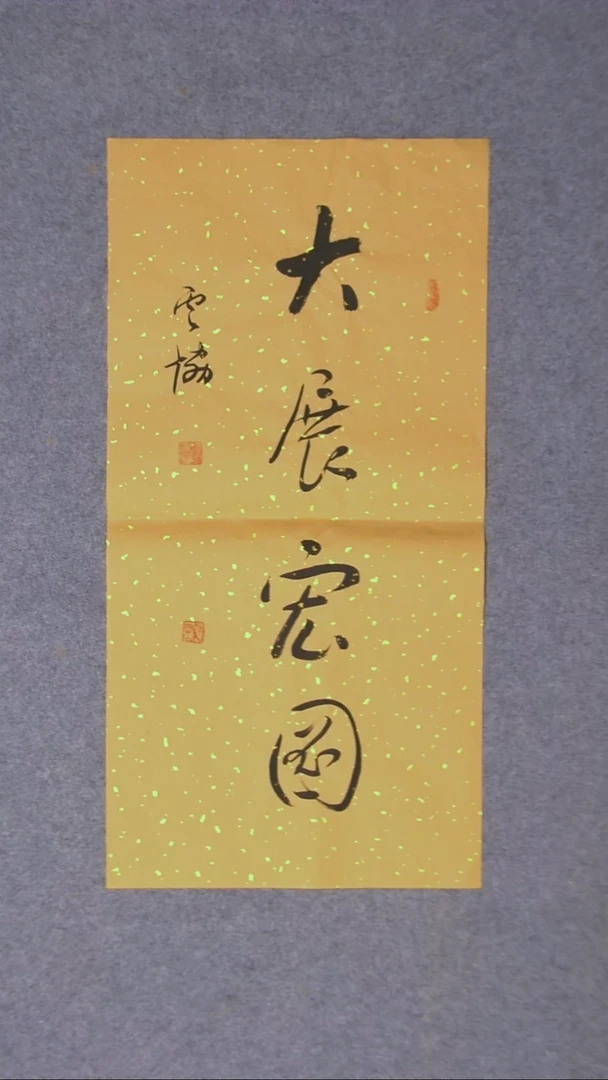 大展宏圖
雲協